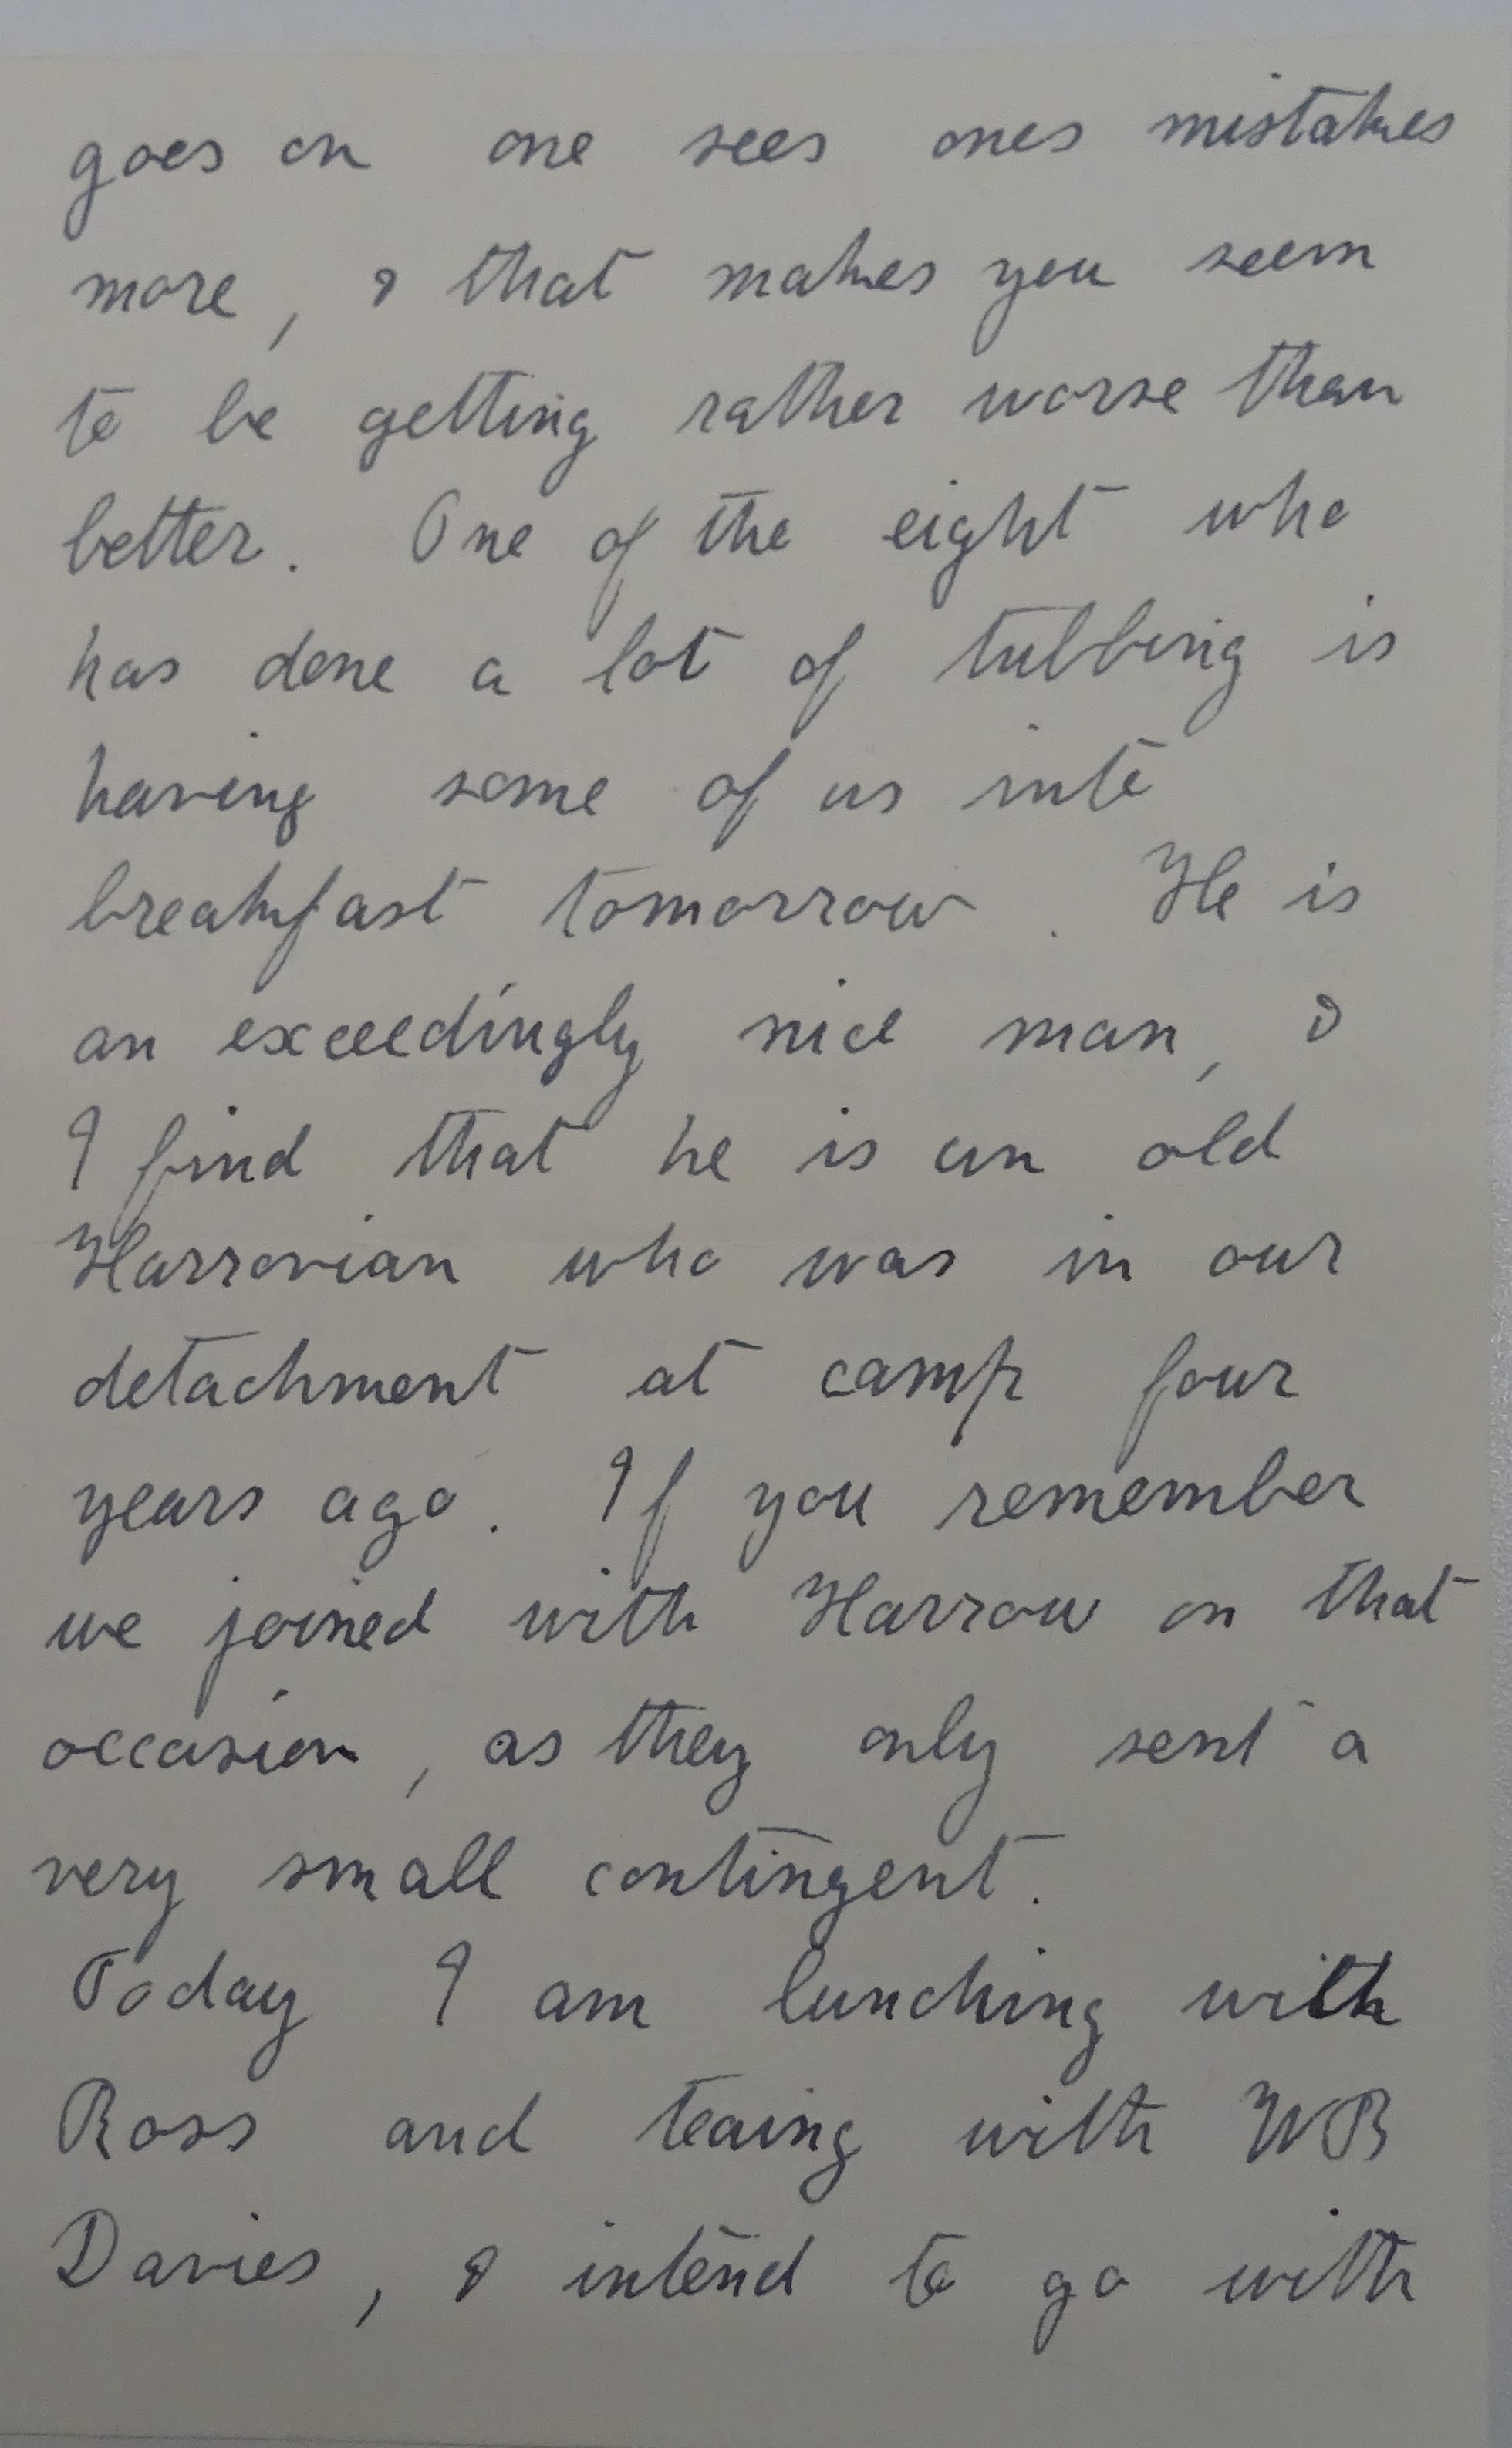 goes on one sees ones mistakes
more, & that makes you seem
to be getting rather worse than
better. One of the eight who
has done a lot of tubbing is
having some of us into
breakfast tomorrow. He is
an exceedingly nice man, &
I find that he is an old
Harrovian who was in our
detachment at camp four
years ago. If you remember
we joined with Harrow on that
occasion, as they only sent a
very small contingent.
Today I am lunching with
Ross and teaing with WB
Davies, & intend to go with